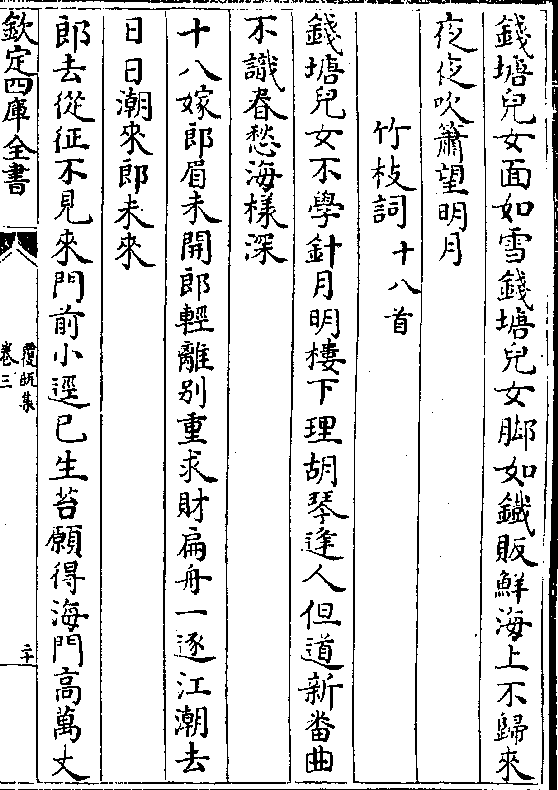 錢塘兒女面如雪錢塘兒女脚如鐵販鮮海上不歸來
夜夜吹簫望明月
竹枝詞十八首
錢塘兒女不學針月明樓下理胡琴逢人但道新畨曲
不識春愁海樣深
十八嫁郎眉未開郎輕離别重求財扁舟一逐江潮去
日日潮來郎未來
郎去從征不見來門前小逕已生苔願得海門高萬丈
欽定四庫全書
覆瓿集
卷三
二十